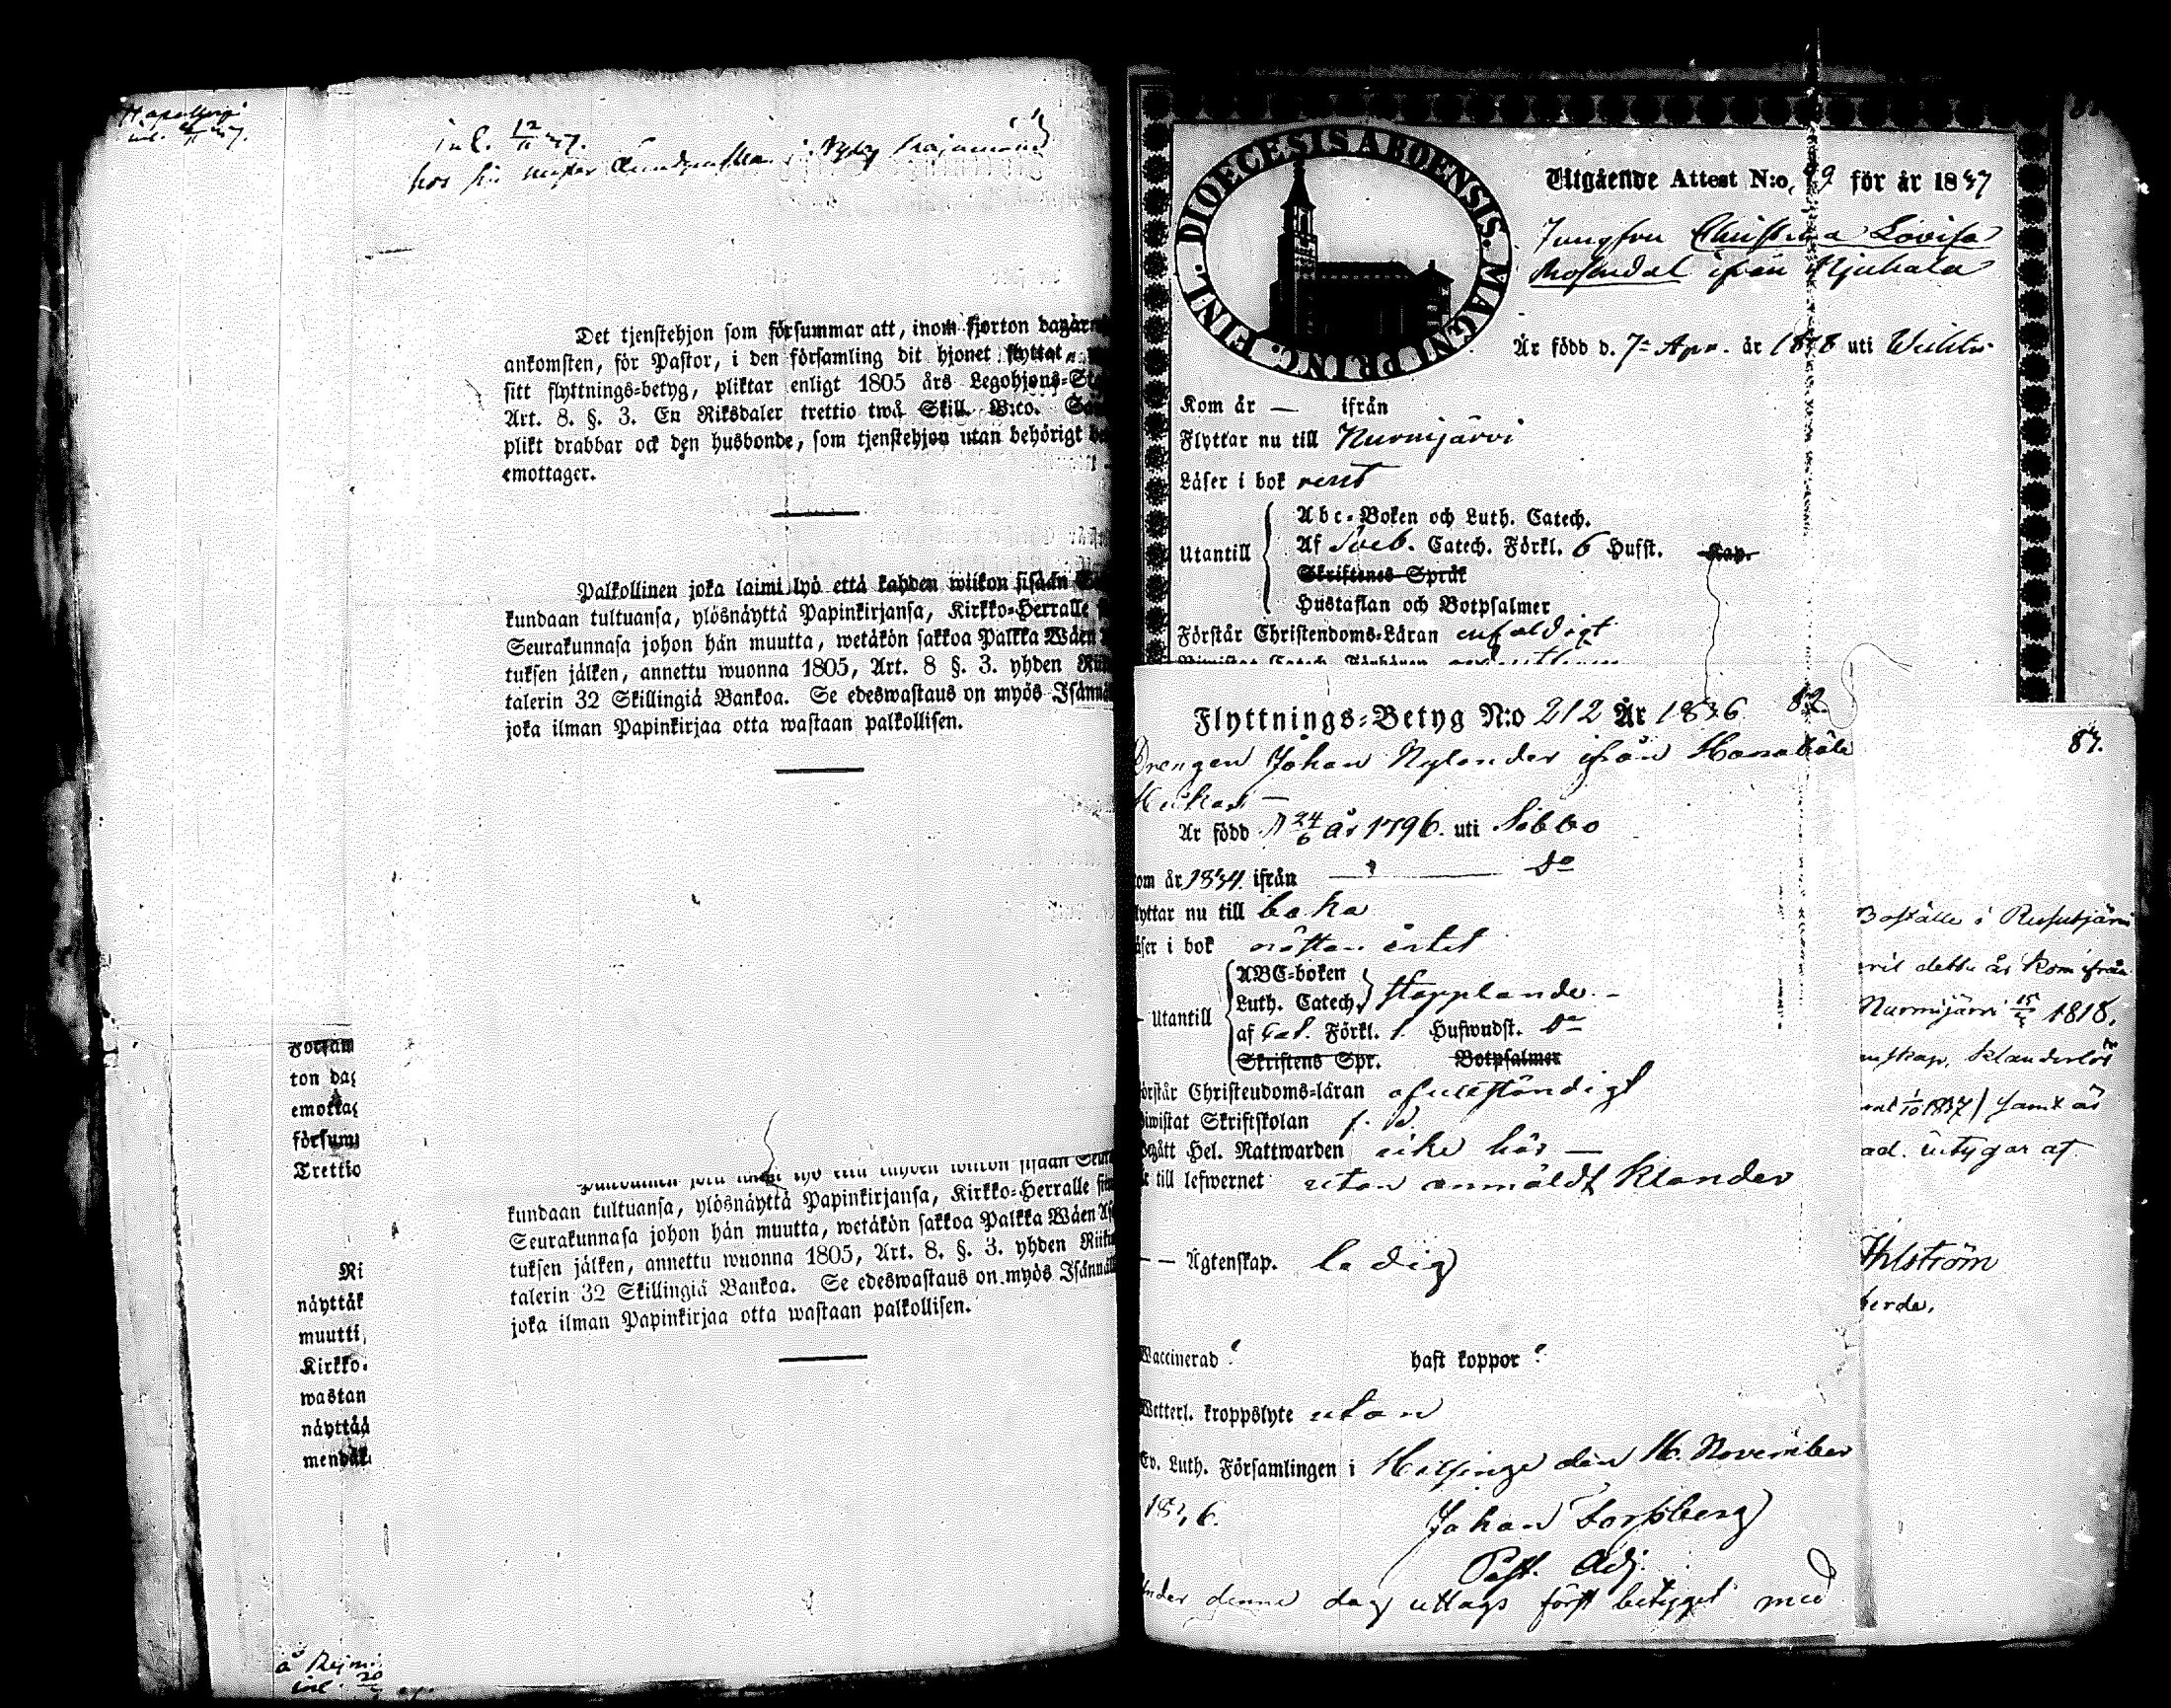 inl. 12/11 37.
hos sin
Det tjenstehjon som försummar att, inom fjorton dagar
ankomsten, för Pastor, i den församling dit hjonet flyttat,
sitt flyttnings-betyg, pliktar enligt 1805 års Legohjons-
Art. 8. §. 3. En Riksdaler trettio twå Skill. B:co.
plikt drabbar ock den husbonde, som tjenstehjon utan behörigt
emottager.
Palkollinen joka laimi lyö että kahden wiikon sisään
kundaan tultuansa, ylösnäyttä Papinkirjansa, Kirkko-Herralle
Seurakunnasa johon hän muutta, wetäkön sakkoa Palkka Wäen
tuksen jälken, annettu wuonna 1805, Art. 8 §. 3. yhden
talerin 32 Skillingiä Bankoa. Se edeswastaus on myös
joka ilman Papinkirjaa otta wastaan palkollisen.
Försam
ton dag
emottag
försum
Trettio
Ri
näyttäk
muutti
Kirkko-
wastan
näyttää
mendäk
lyö että kahden wiikon sisään
kundaan tultuansa, ylösnäyttä Papinkirjansa, Kirkko-Herralle
Seurakunnasa johon hän muutta, wetäkön sakkoa Palkka Wäen
tuksen jälken, annettu wuonna 1805, Art. 8. §. 3. yhden
talerin 32 Skillingiä Bankoa. Se edeswastaus on myös
joka ilman Papinkirjaa otta wastaan palkollisen.
DIOECESIS ABOENSIS. MAGNI PRINC. FINL.
Utgående Attest N:o för år 1837
Jungfru Christina Lovisa
ifrån
Är född d. 7 Apr. år uti Wichtis
Kom år — ifrån
Flyttar nu till Nurmijärvi
Läser i bok rent
Utantill
Abc-Boken och Luth. Catech.
Af Sveb. Catech. Förkl. 6 Hufst. Kap.
Skriftenes Språk
Hustaflan och Botpsalmer
Förstår Christendoms-Läran enfaldigt
Flyttnings-Betyg N:o 212 År 1836 82.
Drengen Johan Nylander ifrån
Är född d 24/6 år 1796. uti Sibbo
om år 1834. ifrån — Do
lyttar nu till baka
äser i bok nästan intet
Utantill
ABC-boken
Luth. Catech. stapplande. -
af Cat. Förkl. 1. Hufwudst. Do
Skriftens Spr. Botpsalmer
örstår Christendoms-läran ofullständigt
iwistat Skriftskolan
Begått Hel. Nattwarden icke här —
till lefwernet utan anmäldt klander
— — Ägtenskap. ledig
Waccinerad ? haft koppor ?
Wetterl. kroppslyte utan
Ev. Luth. Församlingen i Helsinge den 16. November
1836.
Johan Forssberg
Past. Adj.
Under denne dag uttags först betyget med
87.
Boställe i Rusutjärvi
ril detta år kom ifrån
Nurmijärvi 1818.
nskap, klanderlös
1/10 1837 / samt är
ad. intygar af
Ahlström